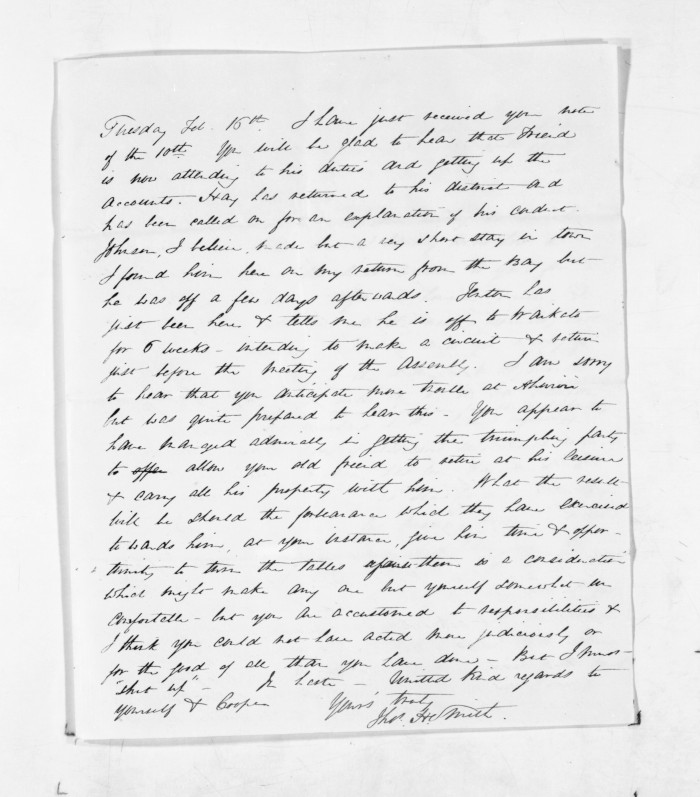 Tuesday Feb. 16th. I have just received your note
of the 10th. You will be glad to hear that Friend
is now attending to his duties and getting up the
accounts. Hay has returned to his district and
has been called on for an explanation of his conduct.
Johnson, I believe, made but a very short stay in town
I found him here on my return from the Bay but
he was off a few days afterwards. Fenton has
just been here & tells me he is off to Waikato
for 6 weeks - intending to make a circuit & return
just before the meeting of the Assembly. I am sorry
to hear that you anticipate more trouble at Ahuriri
but was quite prepared to hear this - You appear to
have managed admirably in getting the triumphing party
to offer allow your old friend to retire at his leisure
& carry all his property with him. What the result
will be should the forbearance which they have exercised
towards him, at your instance, give him time & oppor-
tunity to turn the tables upon them is a consideration
which might make any one but yourself somewhat un
comfortable - but you are accustomed to responsibilities &
I think you could not have acted more judiciously or
for the good of all than you have done - But I must
"shut up" - In haste - United kind regards to
yourself & Cooper
Yours truly
Jno. H. Smith.